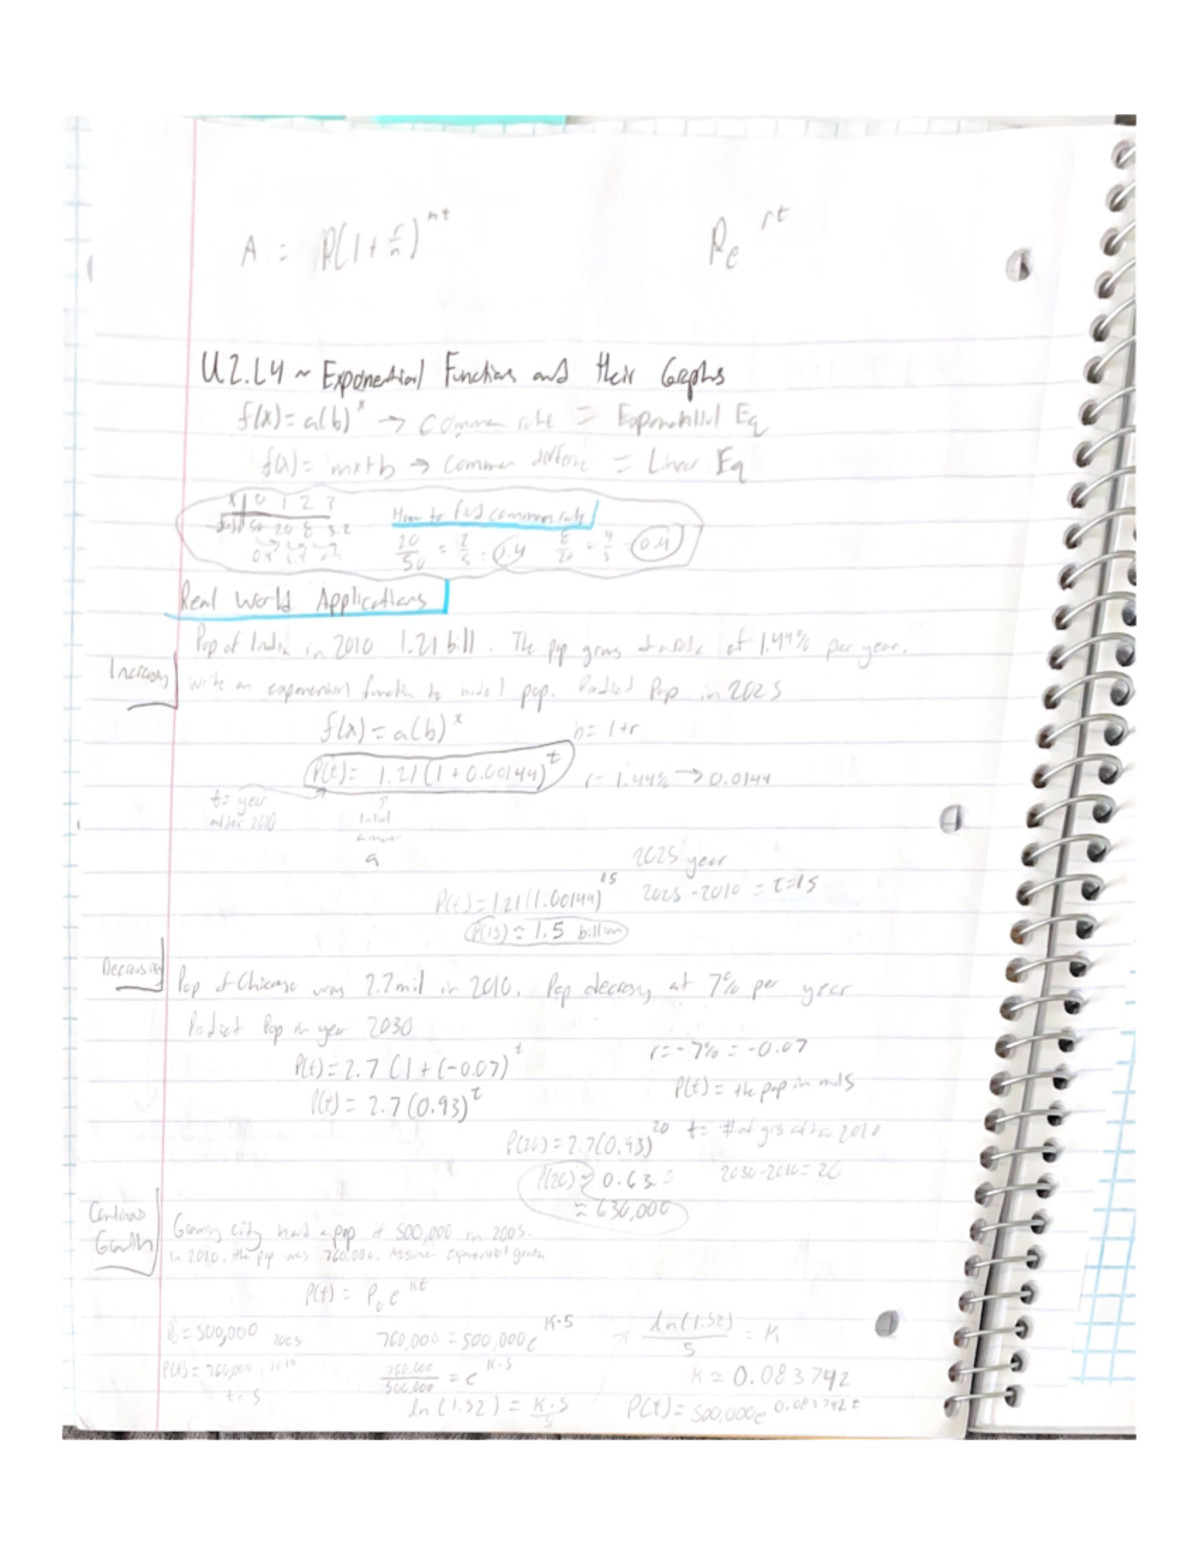 A = P(1 + r/n)^nt    Pe^rt
U2.L4 ~ Exponential Functions and their Graphs
f(x) = a(b)^x → common rate = Exponential Eq
f(x) = mx+b → common difference = Linear Eq
x | 0 1 2 3
f(x) | 50 20 8 3.2
How to find common rate
20/50 = 2/5 = 0.4    8/20 = 4/5 = 0.4
Real World Applications
Pop of India in 2010 1.21 bill. The pop grows at a rate of 1.44% per year.
Increasing
write an exponential function to model pop. Predict Pop in 2025
f(x) = a(b)^x    b = 1+r
P(t) = 1.21(1 + 0.00144)^t    r = 1.44% → 0.0144
t = year after 2010
initial
a
2025 year
P(t) = 1.21(1.00144)^15    2025 - 2010 = t = 15
P(15) ≈ 1.5 billion
Decreasing
Pop of Chicago was 2.7 mil in 2010. Pop decreasy at 7% per year
Predict Pop in year 2030
P(t) = 2.7(1 + (-0.07))^t    r = -7% = -0.07
P(t) = 2.7(0.93)^t    P(t) = the pop in mils
P(20) = 2.7(0.93)^20    t = # of yrs after 2010
P(20) ≈ 0.63    2030-2010 = 20
≈ 630,000
Continuous Growth
Growing city had a pop of 500,000 in 2005.
In 2010, the pop was 760,000. Assume exponential growth
P(t) = P₀e^kt
P₀ = 500,000 2005    760,000 = 500,000e^K·5    ln(1.52)/5 = K
P(t) = 760,000 2010    760,000/500,000 = e^K·5    K ≈ 0.083742
t = 5    ln(1.52) = K·5/5    P(t) = 500,000e^0.083742t